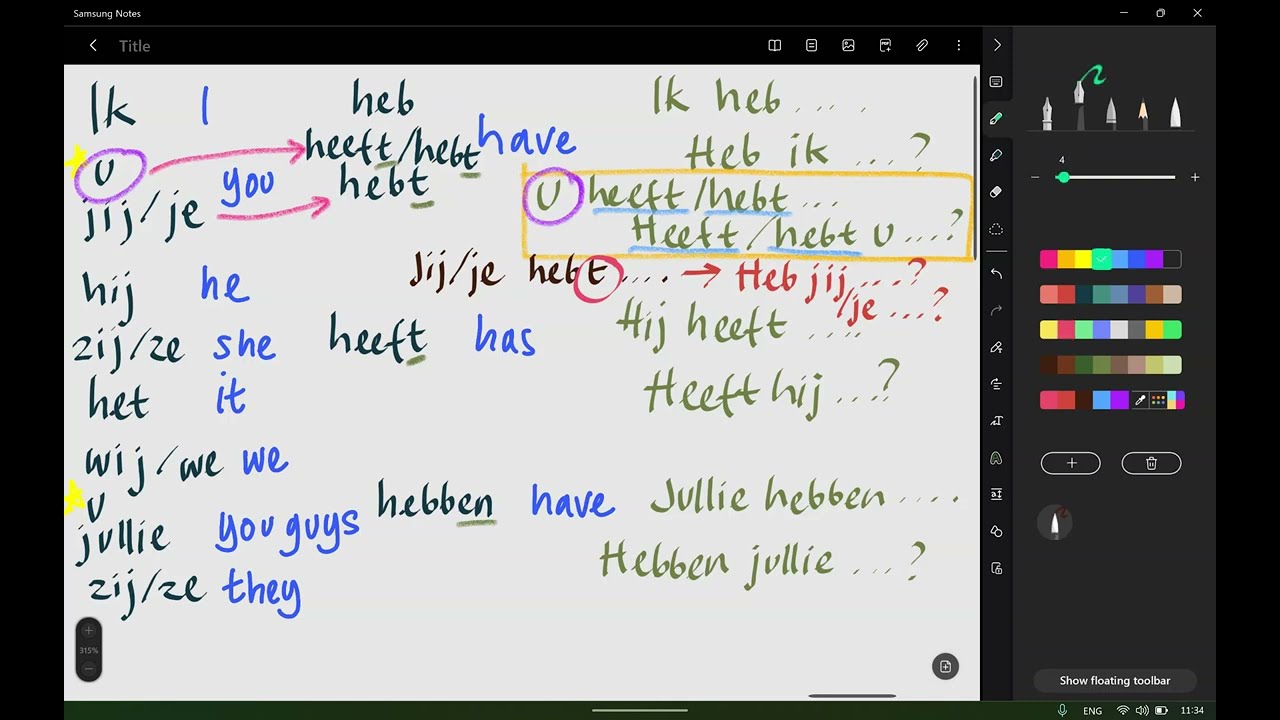 Samsung Notes
Title
Ik I heb Ik heb .....
u heeft/hebt have Heb ik ...?
jij/je you hebt U heeft/hebt ...
Heeft/hebt U ...?
Jij/je hebt .... → Heb jij ...?
/je ...?
hij he Hij heeft ....
zij/ze she heeft has
het it Heeft hij ...?
wij/we we
U
jullie you guys hebben have Jullie hebben ....
zij/ze they Hebben jullie ...?
4
315%
Show floating toolbar
ENG 11:34